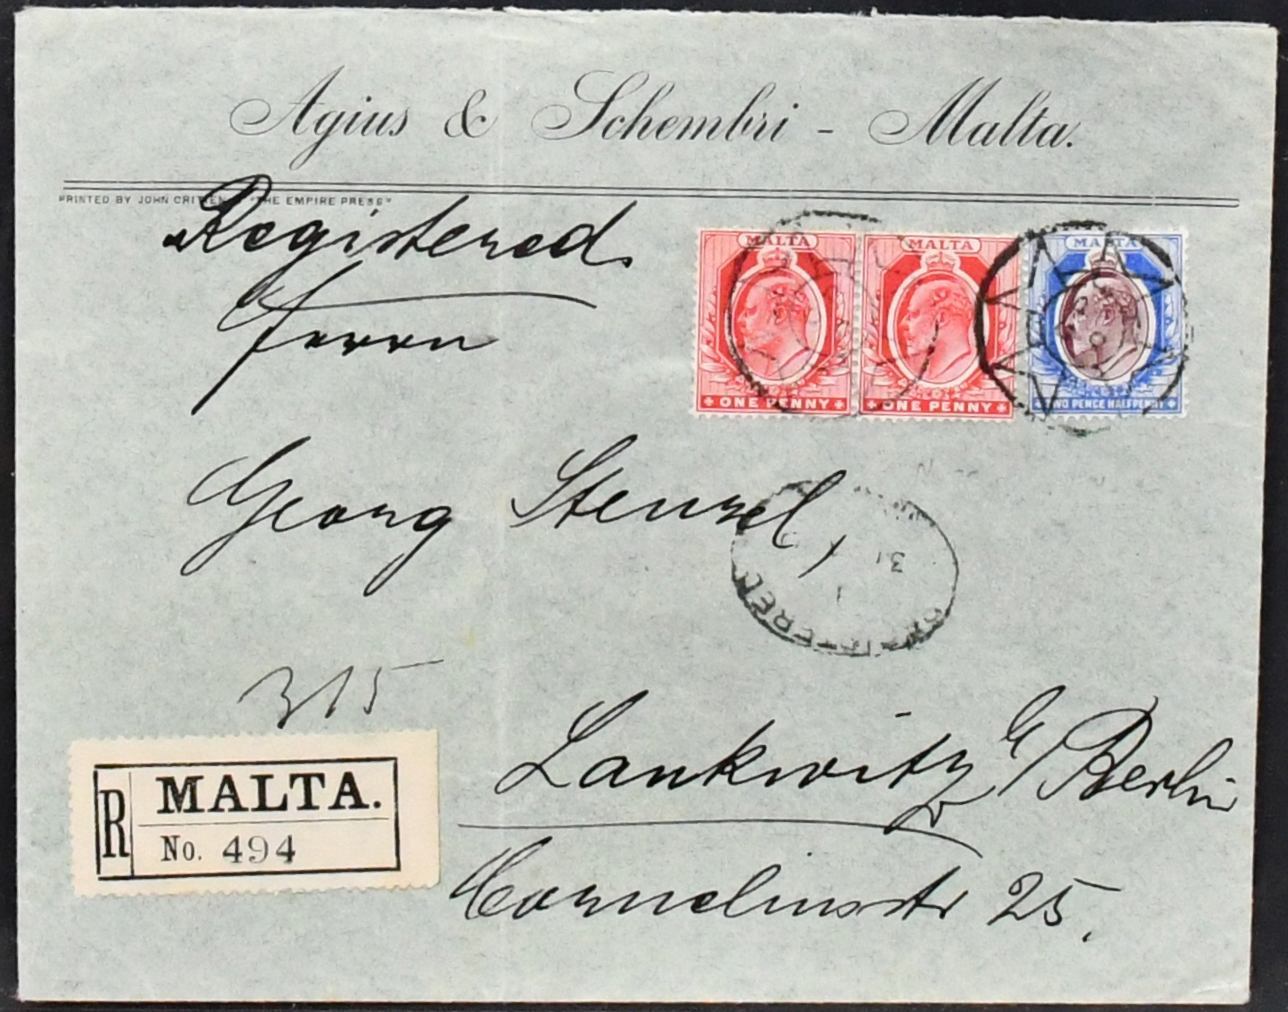 Agius & Schembri - Malta.
PRINTED BY JOHN CRITIEN "THE EMPIRE PRESS"
Registered
Herrn
MALTA MALTA MALTA
ONE PENNY ONE PENNY TWO PENCE HALFPENNY
Georg Stenzel
REGISTERED
31
315
Lankwitz G/ Berlin
R MALTA.
No. 494
Corneliusstr 25.